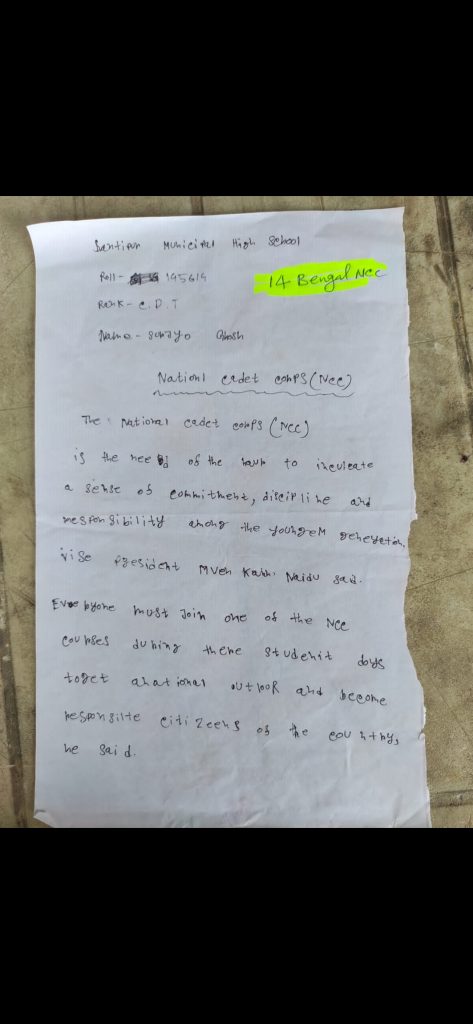 Santipur Municipal High School
Roll - 145614
14 Bengal Ncc
Rank - C.D.T
Name - Ghosh
Nationl cadet comps (Ncc)
The National cadet comps (Ncc)
is the need of the hour to inculcate
a sense of commitment, discipline and
responsibility among the younger generation,
vise president Mven Kahh. Naidu said.
Everyone must Join one of the Ncc
courses during there studenit days
toget anational outlook and become
responsilte citizeens of the country,
he said.